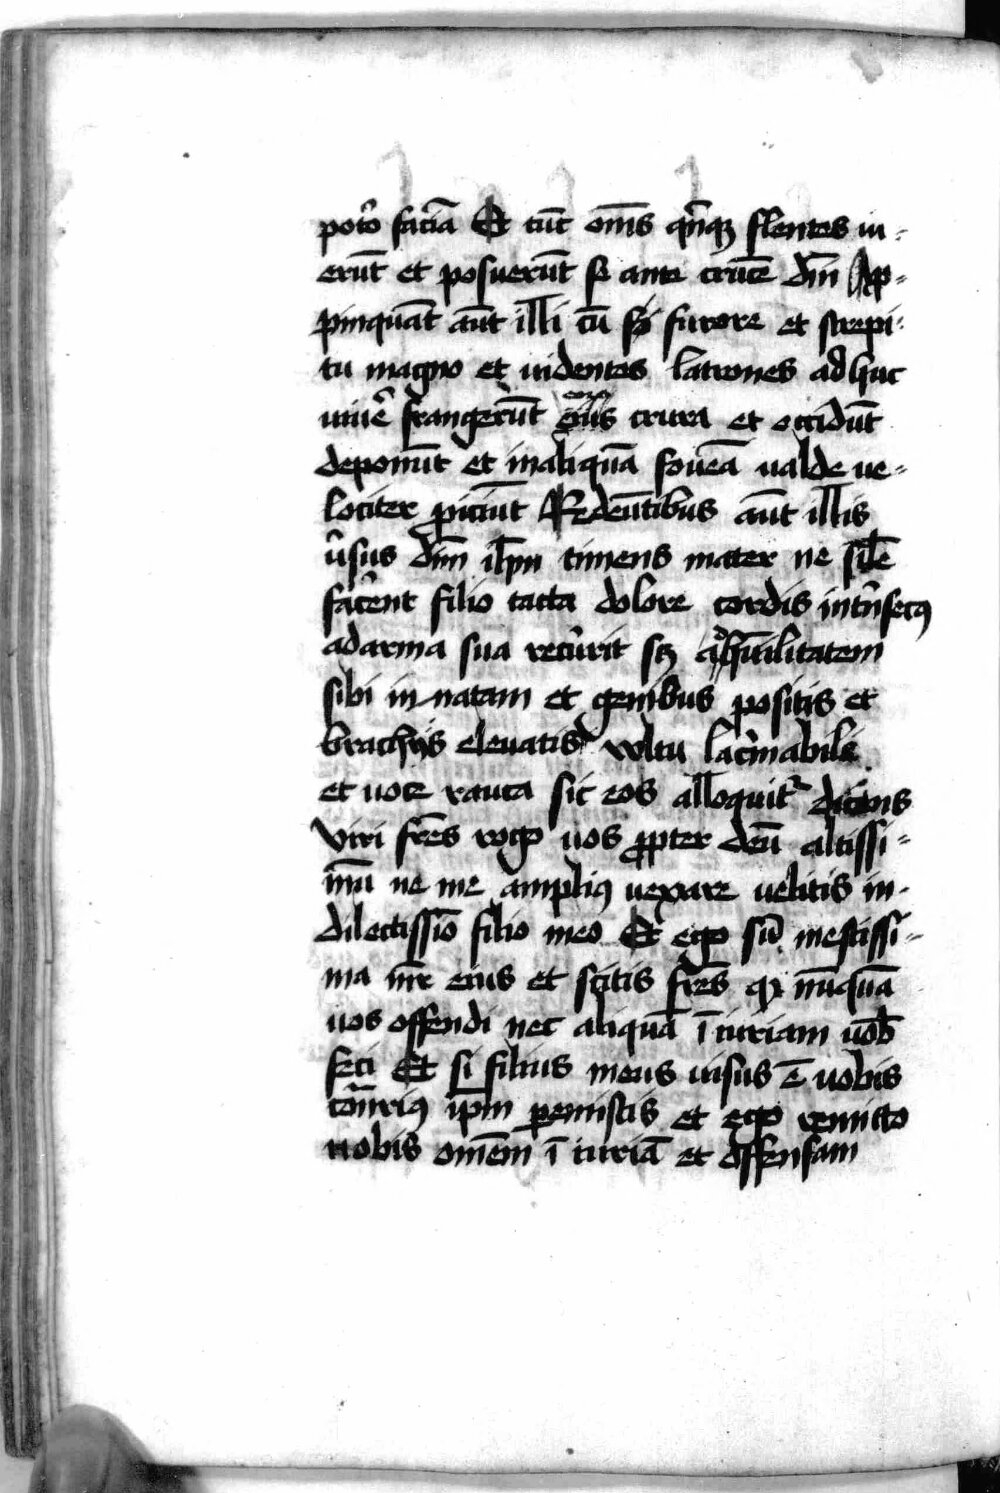 potˀo faciā Et tūc om̄s qn̄qꝫ flentes iu-
erūt et posuerūt se ante crucē dn̄i App-
pinquāt aūt illi cū furore et strepi-
tu magno et uidentes latrones adhuc
uiuē frangerūt eoꝝ crura et occidūt
deponūt et in aliquā foueā ualde ue-
lociter ꝓiciūt Redeūtibus aūt illis
ūsus dn̄m ih̄m timens mater ne sil̄e
fac̄ent filio tacta dolore cordis int̄nsecꝰ
ad arma sua recūrit scꝫ ad hūilitatem
sibi innatam et genibus positis et
brachijs eleuatis uoltu lac̄mabili
et uoce rauca sic eos alloquit᷑ dicens
Viri fr̄es rogo uos ꝓpter deū altissi-
mū ne me ampliꝰ uexare uelitis in
dilectissīo filio meo Et ego sū mestissi-
ma mr̄ eius et scitis fr̄es qꝫ nūquā
uos offendi nec aliquā īiuriam uob̄
feci Et si filius meus uisus ē uobis
cōn̄riꝰ ip̄m ꝑemistis et ego remitto
uobis om̄em īiuriā et offensam